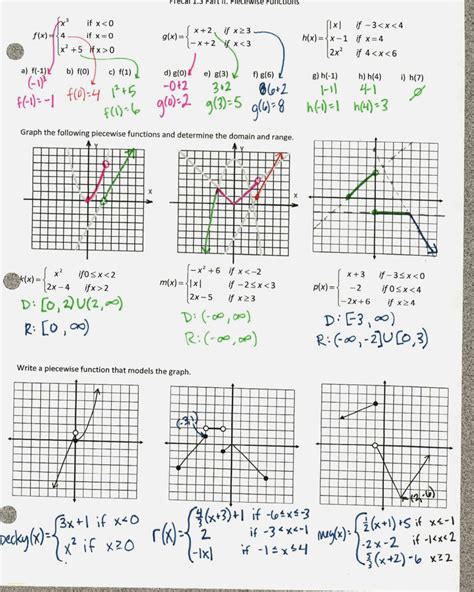 Precal 1.3 Part II: Piecewise Functions
f(x)={ x³ if x<0
4 if x=0
x²+5 if x>0
g(x)={ x+2 if x≥3
-x+2 if x<3
h(x)={ |x| if -3<x<4
x-1 if x=4
2x² if 4<x<6
a) f(-1) b) f(0) c) f(1) d) g(0) e) g(3) f) g(6) g) h(-1) h) h(4) i) h(7)
(-1)³ f(0)=4 1²+5 -0+2 3+2 6+2 |-1| 4-1 ∅
f(-1)=-1 f(1)=6 g(0)=2 g(3)=5 g(6)=8 h(-1)=1 h(4)=3
Graph the following piecewise functions and determine the domain and range.
y
x
y
x
k(x)={ x² if 0≤x<2
2x-4 if x>2
m(x)={ -x²+6 if x<-2
|x| if -2≤x<3
2x-5 if x≥3
p(x)={ x+3 if -3≤x<0
-2 if 0≤x<4
-2x+6 if x≥4
D: [0,2)∪(2,∞)
R: [0,∞)
D: (-∞,∞)
R: (-∞,∞)
D: [-3,∞)
R: (-∞,-2]∪[0,3)
Write a piecewise function that models the graph.
(-3,1)
(2,-6)
becky(x)={ 3x+1 if x<0
x² if x≥0
r(x)={ 4/3(x+3)+1 if -6≤x≤-3
2 if -3<x<-1
-|x| if -1≤x≤4
meg(x)={ 1/2(x+1)+5 if x≤-1
-2x-2 if -1<x<2
5/3(x+2)-6 x≥2